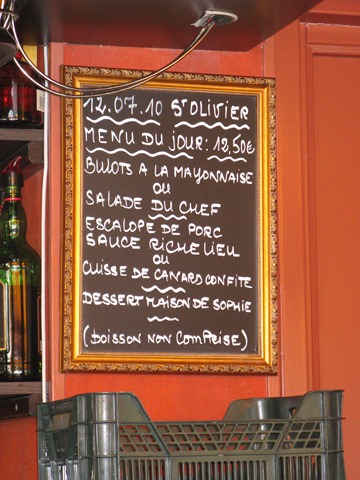 12.07.10 St OLIVIER
MENU DU JOUR: 12,50€
BULOTS A LA MAYONNAISE
OU
SALADE DU CHEF
ESCALOPE DE PORC
SAUCE RICHELIEU
OU
CUISSE DE CANARD CONFITE
DESSERT MAISON DE SOPHIE
(BOISSON NON COMPRISE)